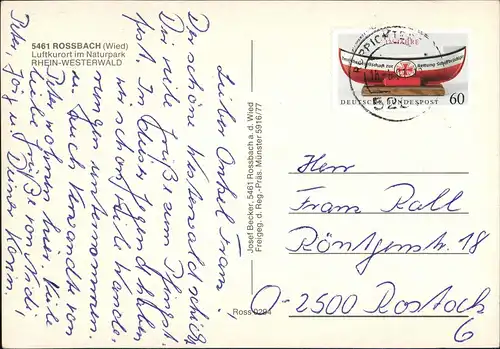 5461 ROSSBACH (Wied)
Luftkurort im Naturpark
RHEIN-WESTERWALD
Lieber Onkel Franz!
Der schöne Westerwald schickt
Dir viele Grüße zum Pfingst-
fest. In dieser Jugend haben
wir schon viele Wande-
rungen unternommen.
Auch Verwandte von
Peter wohnen hier. Viele
liebe Grüße von
Peter, Jörg u. Deiner Karin.
Josef Becker, 5461 Rossbach a. d. Wied
Freigeg. d. Reg.-Präs. Münster 5916/77
Ross 9294
Deutsche Gesellschaft zur Rettung Schiffbrüchiger
DEUTSCHE BUNDESPOST 60
Herr
Franz Rall
Röntgenstr. 18
O-2500 Rostock
6